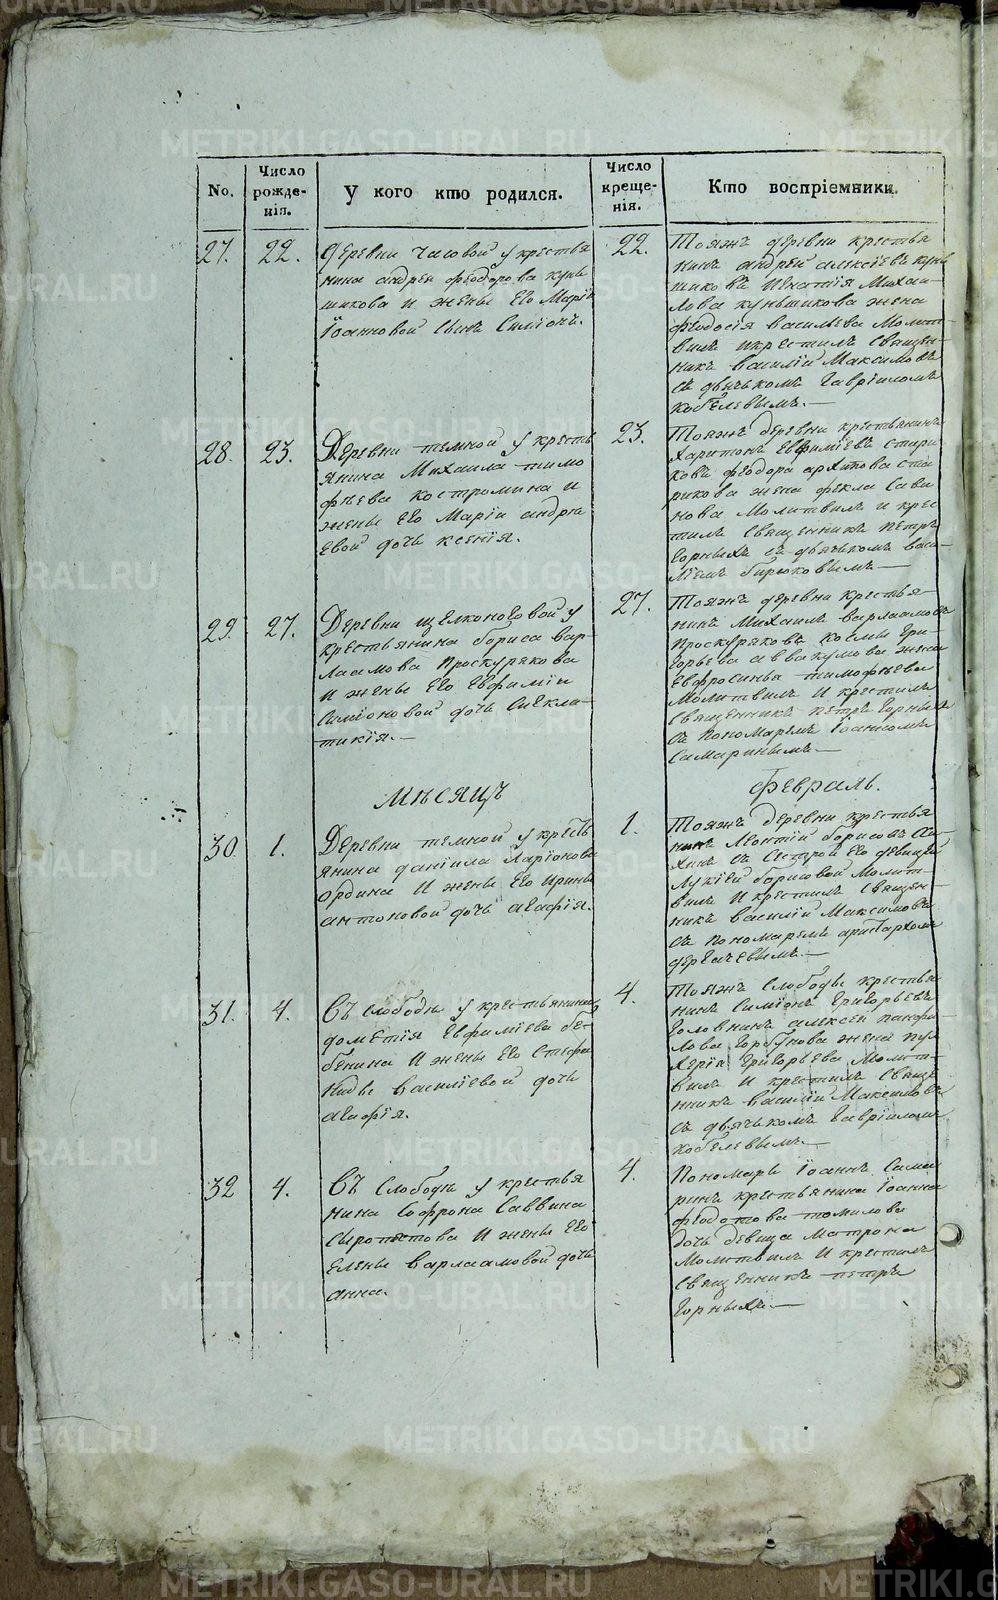 No.
Число рожденія.
У кого кто родился.
Число крещенія.
Кто воспріемники.
27. 22.
Деревни часовой у крестья
нина андрея феодорова кунь
шикова и жены Его Маріи
Іоанновой сынъ Симіонъ.
22.
Тояжъ деревни крестья
нинъ андрей алексіевъ кунь
шиковъ Игнатія Михаи
лова куньшикова жена
феодосія васильева Молит
вилъ икрестилъ Священ
никъ василій Максимовъ
съ дьячькомъ Гавріиломъ
кобелевымъ.—
28. 23.
Деревни темной у кресть
янина Михаила тимо
фѣева костромина и
жены Его Маріи андре
евой дочь ксенія.
23.
Тояжъ деревни крестьянинъ
Харитонъ Евфиміевъ стари
ковъ феодора архипова ста
рикова жена фекла Сави
нова Молитвилъ и крес
тилъ Священникъ петръ
Горныхъ съ дьячькомъ васи
ліемъ бирюковымъ—
29. 27.
Деревни щелконоговой у
крестьянина бориса вар
лаамова проскурякова
и жены Его Евфиміи
Симіоновой дочь Сигкли
тикія.—
27.
Тояжъ деревни крестья
нинъ Михаилъ варлаамовъ
проскуряковъ козмы Гри
горьева аввакумова жена
Евфросинья тимофѣева
Молитвилъ и крестилъ
Священникъ петръ Горныхъ
съ пономаремъ Іоанномъ
Самаринымъ—
Мѣсяцъ
февраль.
30. 1.
Деревни темной у кресть
янина даніила Ларіонова
ордина и жены Его Ирины
антоновой дочь агафія.
1.
Тояжъ деревни крестья
нинъ Леонтій борисовъ
съ Сестрой Его девицей
Лукіей борисовой Молит
вилъ и крестилъ Священ
никъ василій Максимовъ
съ пономаремъ аристархомъ
дергачевымъ.—
31. 4.
Съ слободы у крестьянина
дометія Евфиміева бе
бенина и жены Его Стефа
ниды василіевой дочь
агафія.
4.
Тояжъ слободы крестья
нинъ Симіонъ Григорьевъ
Головнинъ алексея панфи
лова Горбунова жена пул
херія Григорьева Молит
вилъ и крестилъ Свяще
нникъ василій Максимовъ
съ дьячькомъ Гавріиломъ
кобелевымъ—
32 4.
Съ Слободы у крестья
нина Софрона Саввина
Сыропятова и жены Его
Елены варлаамовой дочь
анна.
4.
Пономарь Іоаннъ Сама
ринъ крестьянина Іоанна
феодотова томилова
дочь девица Матрона
Молитвилъ и крестилъ
Священникъ петръ
Горныхъ.—
METRIKI.GASO-URAL.RU